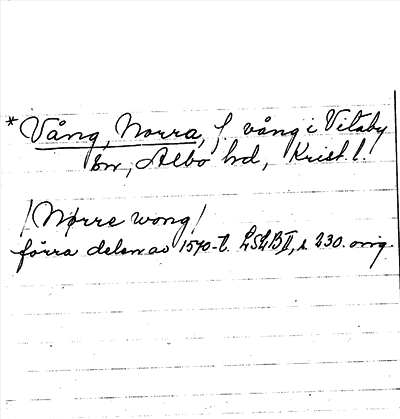 * Vång, Norra, f. vång i Vitaby
sn, Albo hd, Krist. l.
/Nørre wong/
förra delen av 1570-t. LSLB II, s. 230. orig.